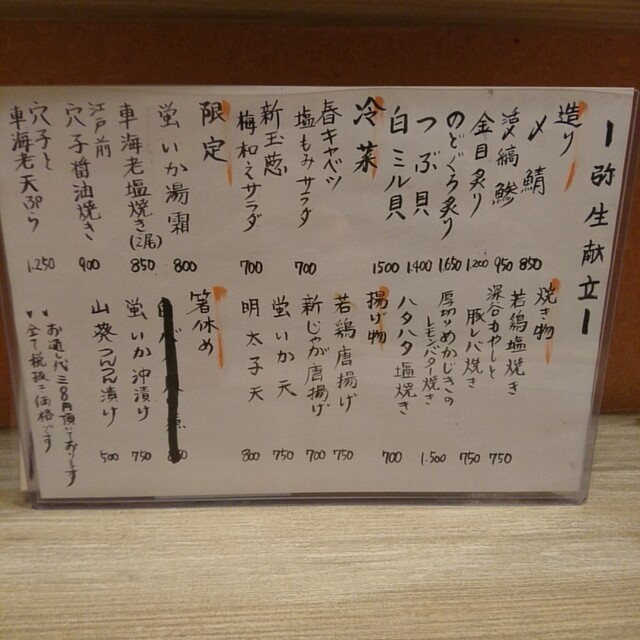 ー弥生献立ー
造り
〆鯖 850
〆縞鯵 950
金目炙り 1.200
のどぐろ炙り 1.650
つぶ貝 1.400
白ミル貝 1500
冷菜
春キャベツ
塩もみサラダ 700
新玉葱
梅和えサラダ 700
限定
蛍いか湯霜 800
車海老塩焼き(2尾) 850
江戸前
穴子醤油焼き 900
穴子と
車海老天ぷら 1.250
焼き物
若鶏塩焼き 750
深谷もやしと
豚レバ焼き 750
厚切りめかじきの
レモンバター焼き 1.500
ハタハタ塩焼き 700
揚げ物
若鶏唐揚げ 750
新じゃが唐揚げ 700
蛍いか天 750
明太子天 800
箸休め
蛍いか沖漬け 750
山葵つんつん漬け 500
お通し代三八〇円頂いております
全て税抜き価格です